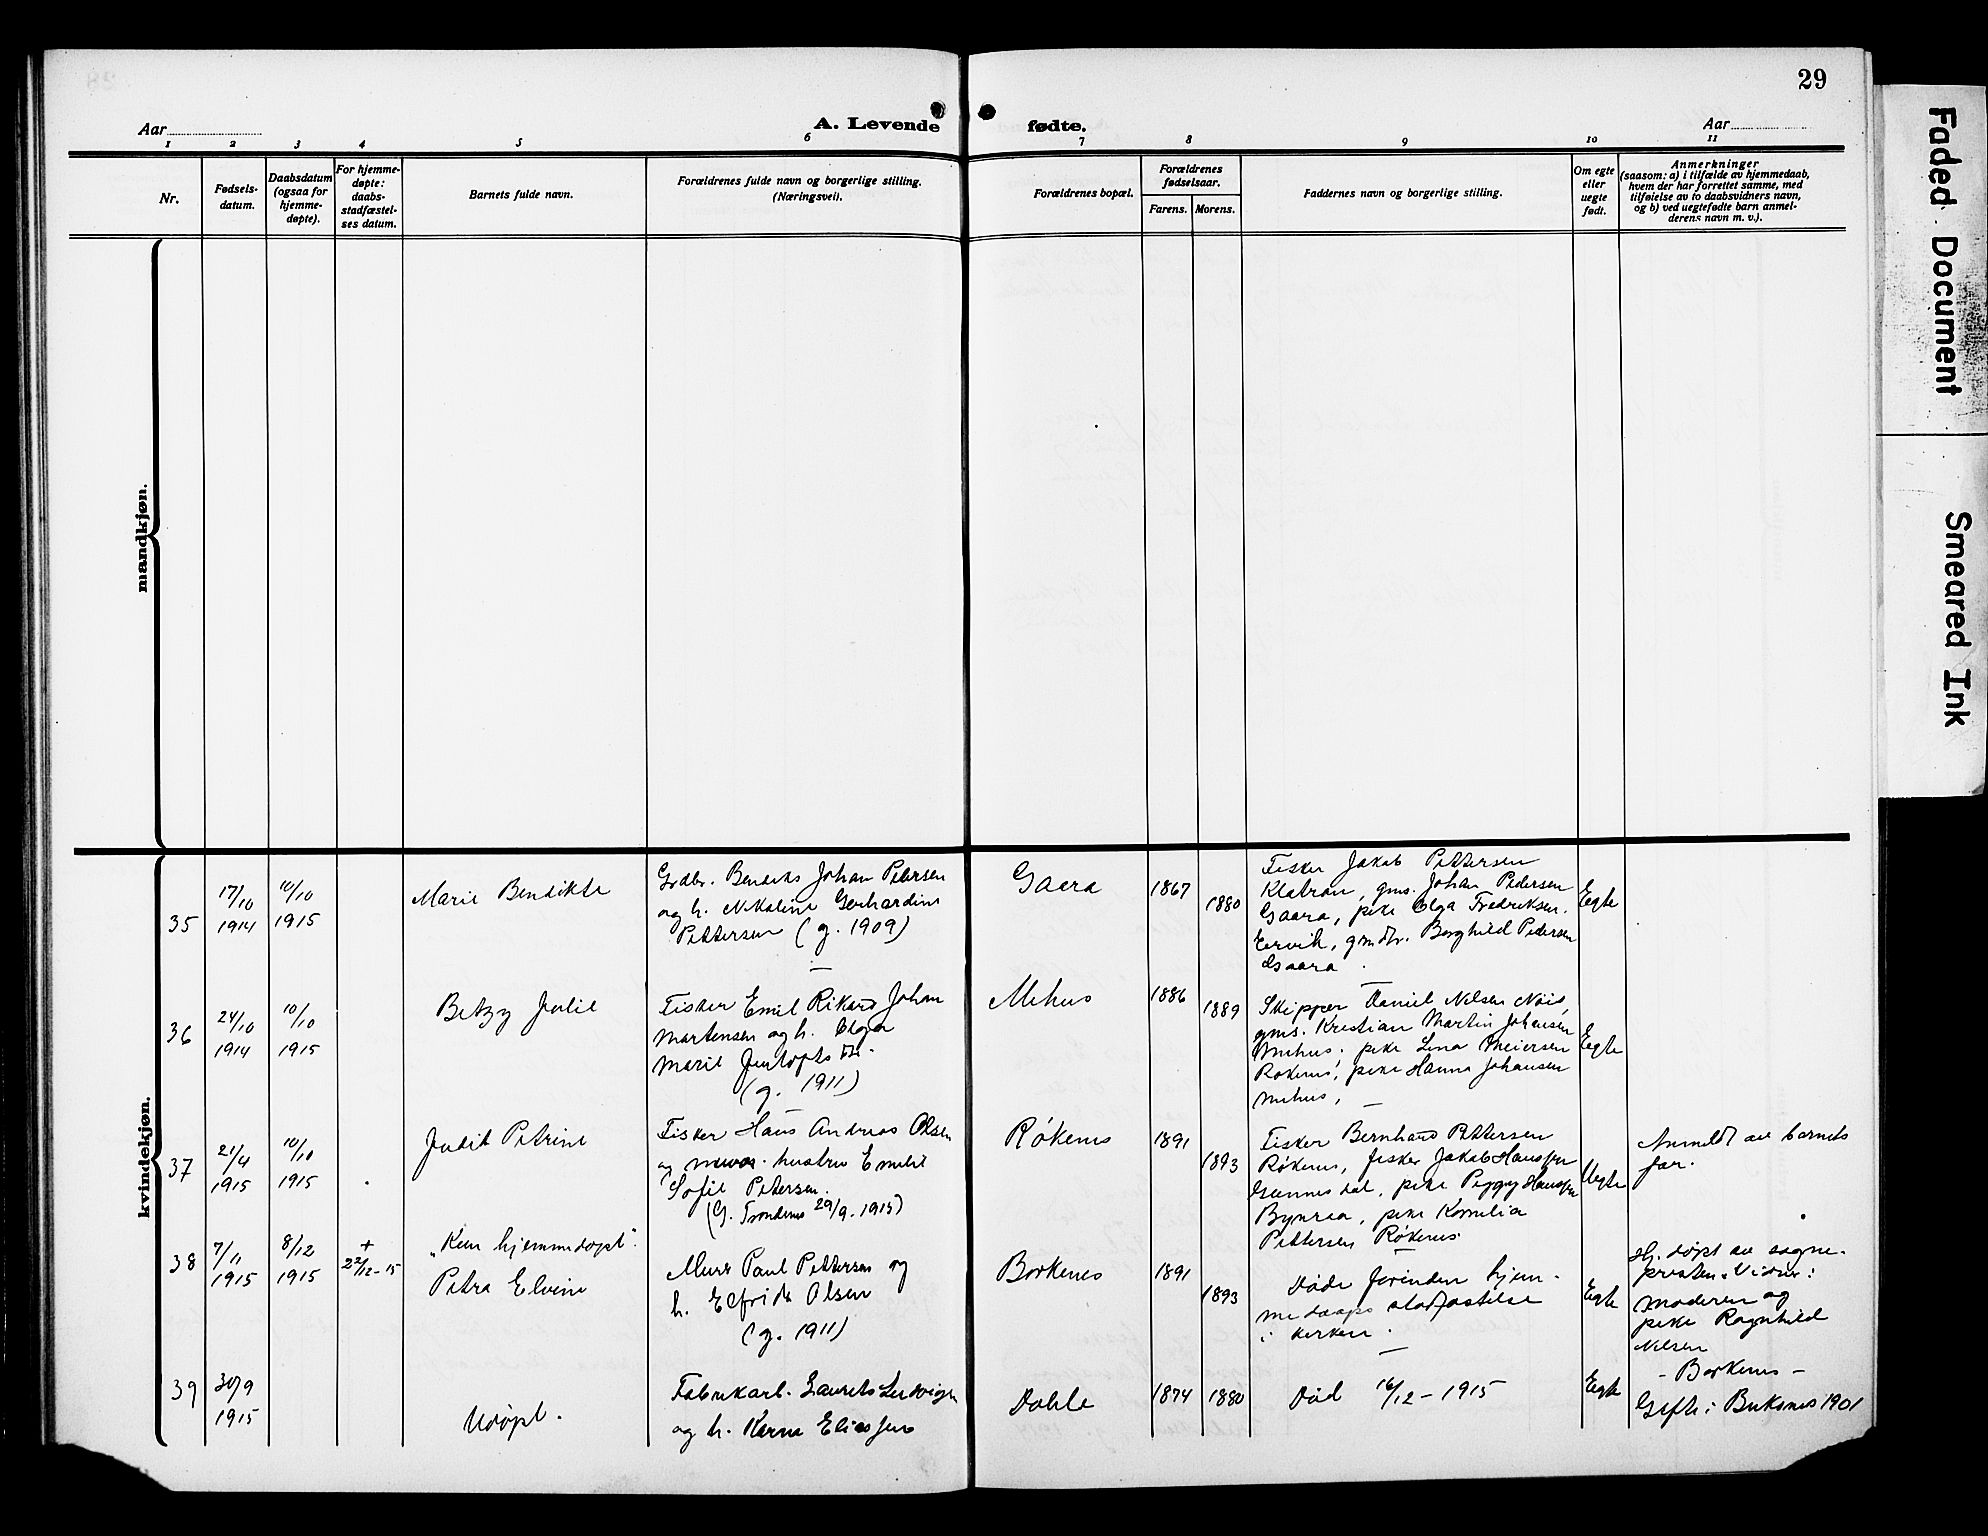 29
Aar
A. Levende
fødte.
Aar
1 2 3 4 5 6 7 8 9 10 11
Nr.
Fødsels-
datum.
Daabsdatum
(ogsaa for
hjemme-
døpte).
For hjemme-
døpte:
daabs-
stadfæstel-
ses datum.
Barnets fulde navn.
Forældrenes fulde navn og borgerlige stilling.
(Næringsvei).
Forældrenes bopæl.
Forældrenes
fødselsaar.
Farens. Morens.
Faddernes navn og borgerlige stilling.
Om egte
eller
uegte
født.
Anmerkninger
(saasom: a) i tilfælde av hjemmedaab,
hvem der har forrettet samme, med
tilføielse av to daabsvidners navn,
og b) ved uegtefødte barn anmel-
derens navn m. v.).
mandkjøn.
kvindekjøn.
35
17/10
1914
10/10
1915
Marie Bendikte
Grdbr. Johan Petersen
og h. Nikoline Gerhardine
Pettersen (g. 1909)
Gaara
1867
1880
Fisker Jakob Pettersen
gms. Johan Pedersen
Gaara, pike Olga Fredriksen
Ervik, Borghild Pedersen
Gaara.
Egte
36
24/10
1914
10/10
1915
Betzy Julie
Fisker Emil Rikard Johan
Martensen og h. Olga
Marie
(g. 1911)
Mehus
1886
1889
Skipper Daniel Nilsen
gms. Kristian Martin Johansen
Mehus. pike Lina Meiersen
Røkenes, pike Hanna Johansen
Mehus,
Egte
37
21/4
1915
10/10
1915
Judit Petrine
Fisker Hans Andreas Olsen
og hustru Emelie
Sofie Petersen.
(G. Trondenes 29/9. 1915)
Røkenes
1891
1893
Fisker Bernhard Pettersen
Røkenes, fisker Jakob Hanssen
pike Peggy Hanssen
pike Kornelia
Pettersen Røkenes.
Uegte
Anmeldt av barnets
far.
38
7/11
1915
8/12
1915
+
22/12-15
"Kun hjemmedøpt".
Petra Elvine
Murer Paul Pettersen og
h. Elfrida Olsen
(g. 1911)
Borkenes
1891
1893
Døde forinden hjem-
medaaps stadfæstelse
i kirken.
Egte
Hj. døpt av sogne-
presten. Vidner:
Moderen og
pike Ragnhild
Nilsen
- Borkenes -
39
30/9
1915
Udøpt.
Fabrikarb. Laurits Ludvigsen
og h. Karna Eliassen
Dahle
1874
1880
Død 16/12-1915
Egte
Gift i Buksnes 1901
Faded Document
Smeared Ink